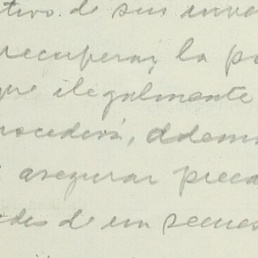 tivo de sus inve
recuperar la po
que ilegalmente
rocederá, ademá
asegurar preca
des de un secues